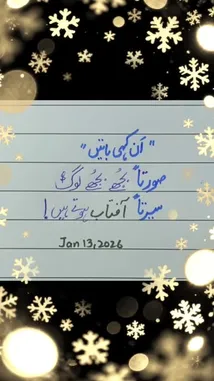 "ان کہی باتیں"
صورتاً بجھے بجھے لوگ
سیرتاً آفتاب ہوتے ہیں!
Jan 13, 2026